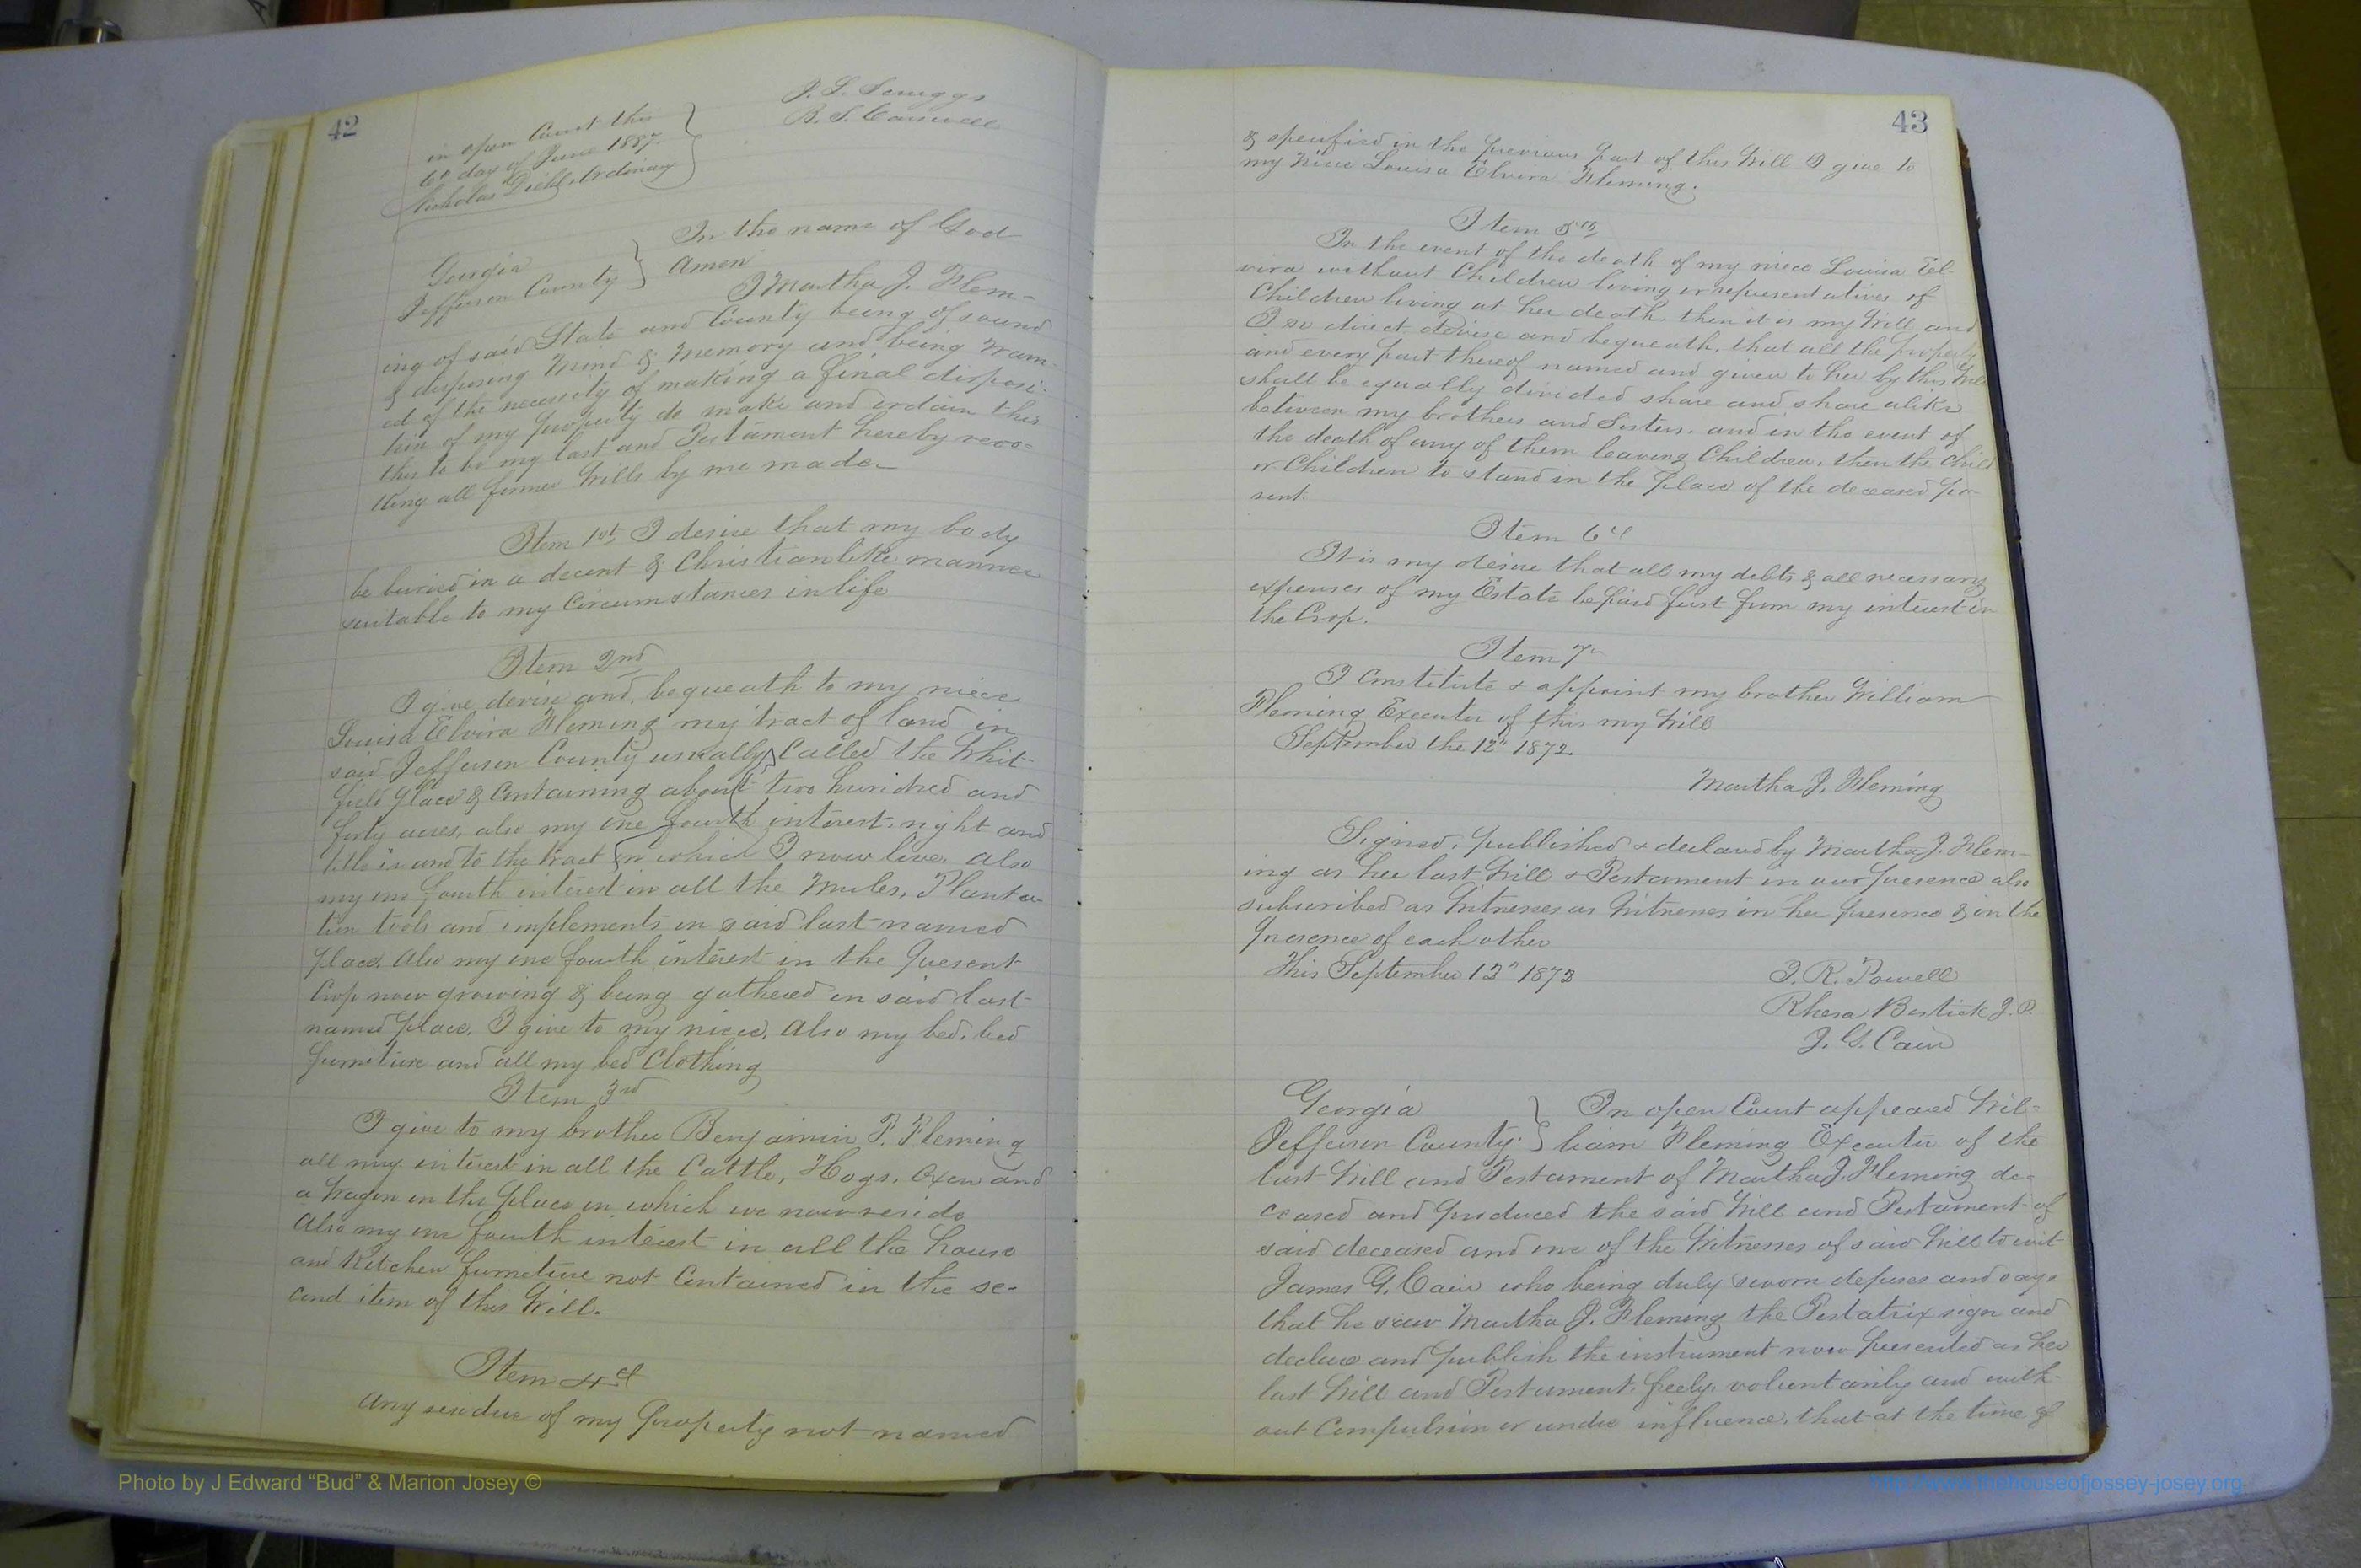 42
in open Court this
6th day of June 1887.
Nicholas Diehl, Ordinary
J. L. Scruggs
B. S. Carswell
Georgia
Jefferson County
In the name of God
Amen
I Martha J. Flem-
ing of said State and County being of sound
& disposing Mind & Memory and being warn-
ed of the necessity of making a final disposi-
tion of my property do make and ordain this
this to be my last and Testament hereby revo-
king all former Wills by me made
Item 1st I desire that my body
be buried in a decent & Christian like manner
suitable to my Circumstances in life
Item 2nd
I give devise and, bequeath to my niece
Louisa Elvira Fleming my tract of land in
said Jefferson County usually Called the Whit-
field place & Containing about two hundred and
forty acres, also my one fourth interest, right and
title in and to the tract on which I now live. also
my one fourth interest in all the Mules, Planta-
tion tools and implements on said last named
place. Also my one fourth interest in the present
Crop now growing & being gathered on said last
named place. I give to my niece. Also my bed, bed
furniture and all my bed Clothing
Item 3rd
I give to my brother Benjamin F. Fleming
all my interest in all the Cattle, Hogs, Oxen and
a Wagon on the place on which we now reside
Also my one fourth interest in all the house
and Kitchen furniture not Contained in the se-
cond item of this Will.
Item 4th
Any residue of my Property not named
43
& specified in the previous part of this Will I give to
my Niece Louisa Elvira Fleming.
Item 5th
In the event of the death of my niece Louisa El-
vira without Children living or representatives of
Children living at her death. then it is my Will and
I so direct devise and bequeath, that all the property
and every part thereof named and given to her by this Will
shall be equally divided share and share alike
between my brothers and Sisters. and in the event of
the death of any of them leaving Children, then the Child
or Children to stand in the place of the deceased pa-
rent.
Item 6th
It is my desire that all my debts & all necessary
expenses of my Estate be paid first from my interest in
the Crop.
Item 7th
I Constitute & appoint my brother William
Fleming Executor of this my Will
September the 12th 1872.
Martha J. Fleming
Signed, published & declared by Martha J. Flem-
ing as her last Will & Testament in our presence also
subscribed as Witnesses as Witnesses in her presence & in the
presence of each other
This September 12th 1872
J. R. Powell
Rhesa Bostick J.P.
J. G. Cain
Georgia
Jefferson County.
In open Court appeared Wil-
liam Fleming Executor of the
last Will and Testament of Martha J. Fleming de-
ceased and produced the said Will and Testament of
said deceased and one of the Witnesses of said Will to wit
James G. Cain who being duly sworn deposes and says
that he saw Martha J. Fleming the Testatrix sign and
declare and publish the instrument now presented as her
last Will and Testament, freely, voluntarily and with-
out Compulsion or undue influence, that at the time of
Photo by J Edward “Bud” & Marion Josey ©
http://www.thehouseofjossey-josey.org